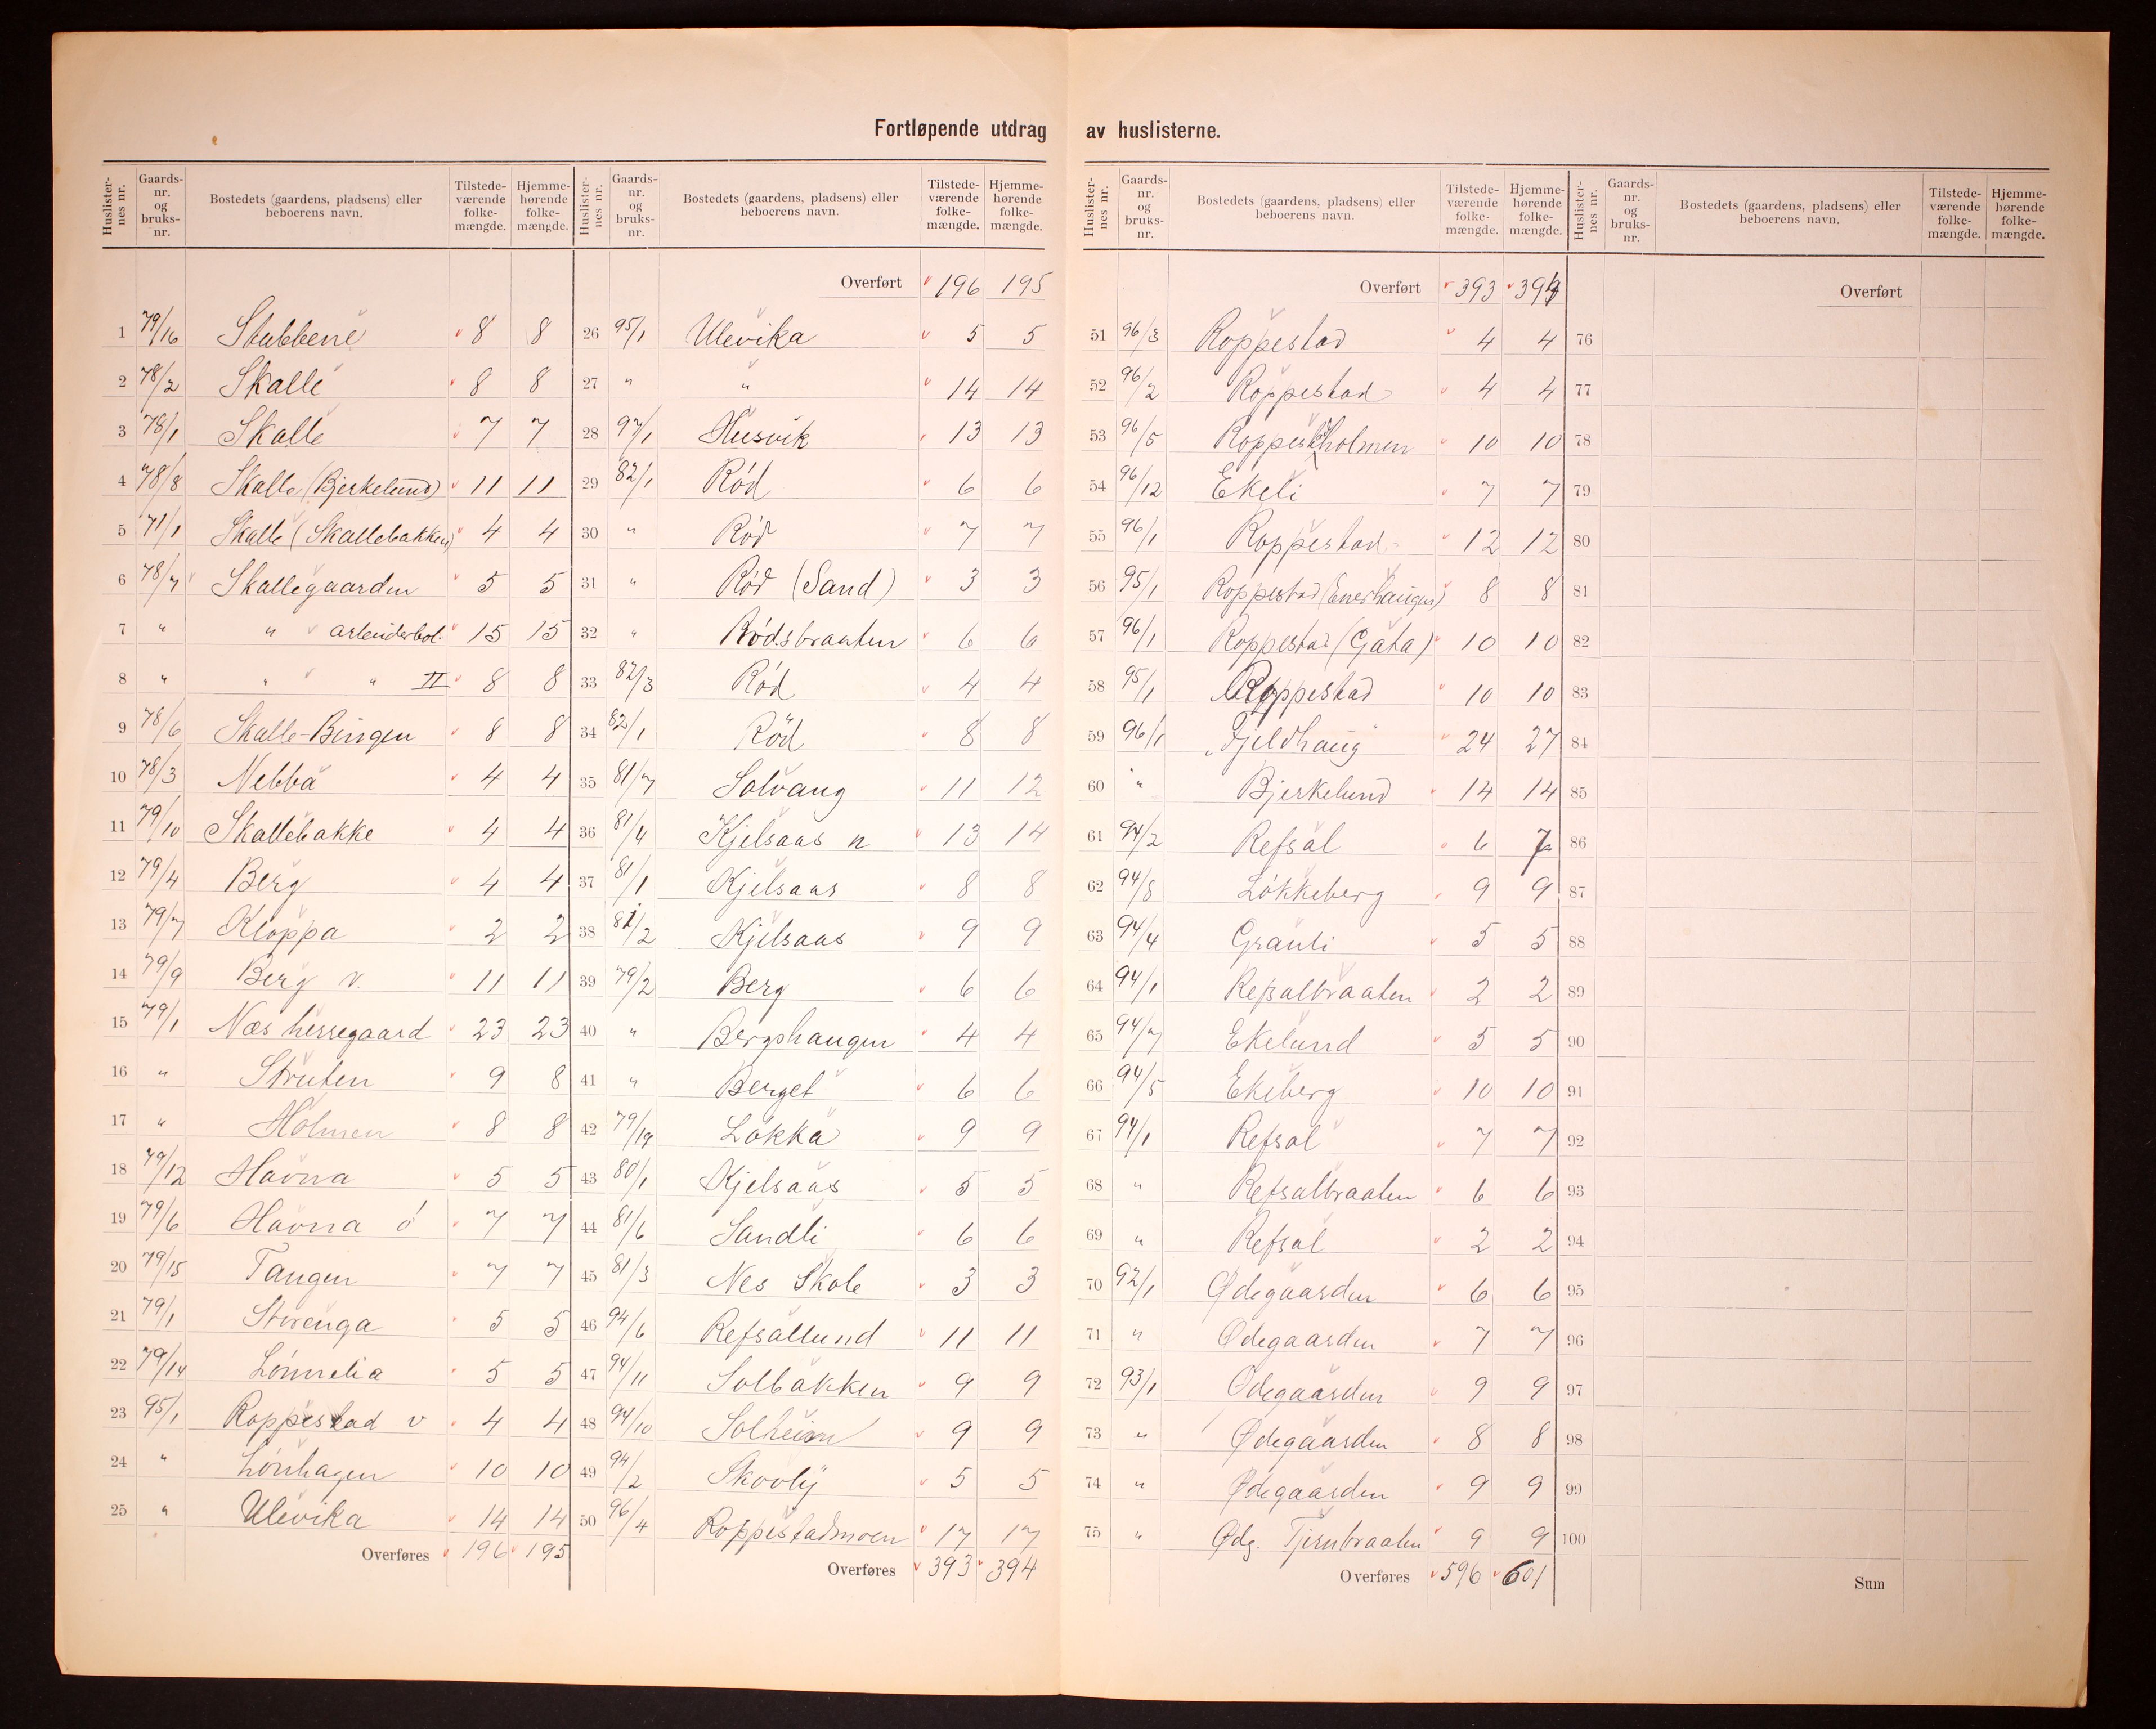 Fortløpende utdrag av huslisterne.
Huslisternes nr. Gaards-nr. og bruks-nr. Bostedets (gaardens, pladsens) eller beboerens navn. Tilstedeværende folkemængde. Hjemmehørende folkemængde.
1 79/16 Stubbene 8 8
2 78/2 Skalle 8 8
3 78/1 Skalle 7 7
4 78/8 Skalle (Bjerkelund) 11 11
5 71/1 Skalle (Skallebakken) 4 4
6 78/7 Skallegaarden 5 5
7 " " arbeiderbol. 15 15
8 " " " II 8 8
9 78/6 Skalle-Bingen 8 8
10 78/3 Nebba 4 4
11 79/10 Skallebakke 4 4
12 79/4 Berg 4 4
13 79/7 Kloppa 2 2
14 79/9 Berg v. 11 11
15 79/1 Næs herregaard 23 23
16 " Struten 9 8
17 " Holmen 8 8
18 79/12 Havna 5 5
19 79/6 Havna ó 7 7
20 79/15 Tangen 7 7
21 79/1 Storenga 5 5
22 79/14 Lónnelia 5 5
23 95/1 Roppestad v 4 4
24 " Lónhagen 10 10
25 " Ulevika 14 14
Overføres 196 195
Huslisternes nr. Gaards-nr. og bruks-nr. Bostedets (gaardens, pladsens) eller beboerens navn. Tilstedeværende folkemængde. Hjemmehørende folkemængde.
Overført 196 195
26 95/1 Ulevika 5 5
27 " " 14 14
28 97/1 Husvik 13 13
29 82/1 Ród 6 6
30 " Ród 7 7
31 " Ród (Sand) 3 3
32 " Ródsbraaten 6 6
33 82/3 Ród 4 4
34 82/1 Ród 8 8
35 81/7 Solvang 11 12
36 81/4 Kjelsaas n 13 14
37 81/1 Kjelsaas 8 8
38 81/2 Kjelsaas 9 9
39 79/2 Berg 6 6
40 " Bergshaugen 4 4
41 " Berget 6 6
42 79/19 Løkka 9 9
43 80/1 Kjelsaas 5 5
44 81/6 Sandli 6 6
45 81/3 Nes Skole 3 3
46 94/6 Refsallund 11 11
47 94/11 Solbakken 9 9
48 94/10 Solheim 9 9
49 94/2 Skovly 5 5
50 96/4 Roppestadmoen 17 17
Overføres 393 394
Huslisternes nr. Gaards-nr. og bruks-nr. Bostedets (gaardens, pladsens) eller beboerens navn. Tilstedeværende folkemængde. Hjemmehørende folkemængde.
Overført 393 394
51 96/3 Roppestad 4 4
52 96/2 Roppestad 4 4
53 96/5 Roppestadholmen 10 10
54 96/12 Ekeli 7 7
55 96/1 Roppestad 12 12
56 95/1 Roppestad (Enerhaugen) 8 8
57 96/1 Roppestad (Gata) 10 10
58 95/1 Roppestad 10 10
59 96/1 Fjeldhaug 24 27
60 " Bjerkelund 14 14
61 94/2 Refsal 6 7
62 94/8 Lókkeberg 9 9
63 94/4 Granli 5 5
64 94/1 Refsalbraaten 2 2
65 94/7 Ekelund 5 5
66 94/5 Ekeberg 10 10
67 94/1 Refsal 7 7
68 " Refsalbraaten 6 6
69 " Refsal 2 2
70 92/1 Ødegaarden 6 6
71 " Ødegaarden 7 7
72 93/1 Ødegaarden 9 9
73 " Ødegaarden 8 8
74 " Ødegaarden 9 9
75 " Ødg. Tjernbraaten 9 9
Overføres 596 601
Huslisternes nr. Gaards-nr. og bruks-nr. Bostedets (gaardens, pladsens) eller beboerens navn. Tilstedeværende folkemængde. Hjemmehørende folkemængde.
Overført
76
77
78
79
80
81
82
83
84
85
86
87
88
89
90
91
92
93
94
95
96
97
98
99
100
Sum